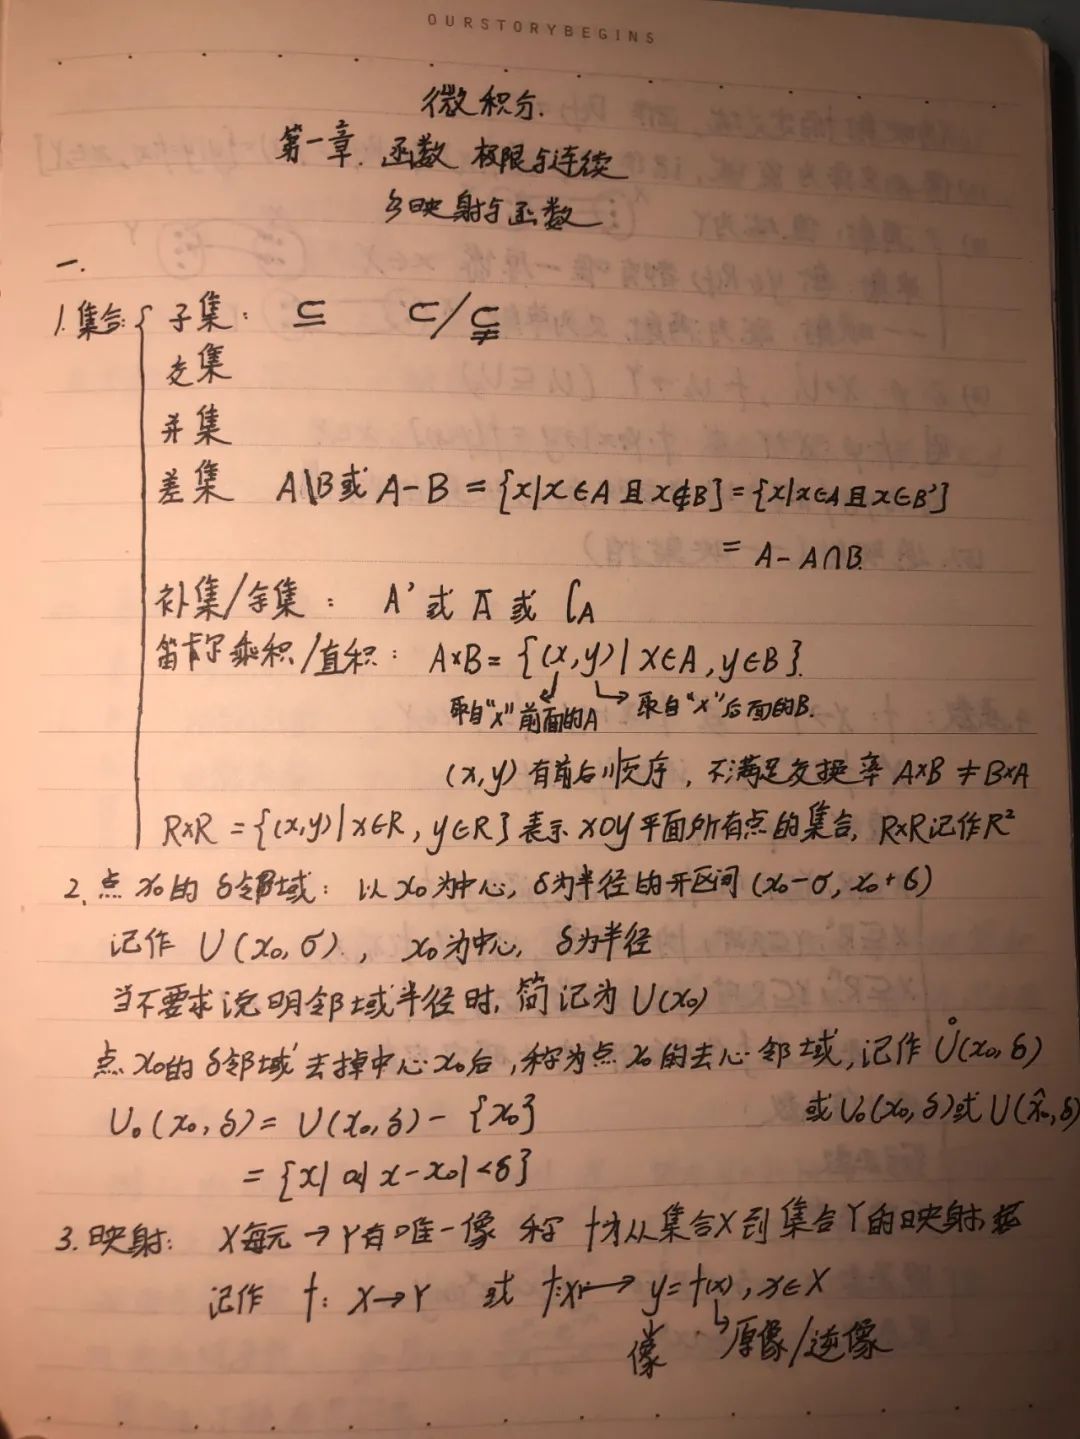 OURSTORYBEGINS
微积分.
第一章. 函数 极限与连续
§映射与函数
一.
1.集合: { 子集: ⊆ ⊂/⫋
交集
并集
差集 A\B或 A-B = {x|x∈A 且 x∉B} = {x|x∈A且x∈B'}
= A-A∩B.
补集/余集: A' 或 Ā 或 ∁A
笛卡尔乘积/直积: A×B = {(x,y)|x∈A, y∈B}.
取自"×"前面的A 取自"×"后面的B.
(x,y) 有前后顺序, 不满足交换率 A×B ≠ B×A
R×R = {(x,y)|x∈R, y∈R} 表示 xoy 平面所有点的集合, R×R记作R²
2. 点 x₀的 δ邻域: 以 x₀ 为中心, δ为半径的开区间 (x₀-σ, x₀+δ)
记作 U(x₀,σ)., x₀为中心, δ为半径
当不要求说明邻域半径时, 简记为 U(x₀)
点 x₀的 δ邻域 去掉中心x₀后, 称为点 x₀ 的去心邻域, 记作 Ů(x₀,δ)
或 U₀(x₀,δ)或 U(x̂₀,δ)
U₀(x₀,δ) = U(x₀,δ) - {x₀}
= {x| 0<| x-x₀|<δ}
3. 映射: X每元→Y有唯一像 称 f为从集合X到集合Y的映射
记作 f: X→Y 或 f:x↦ y=f(x), x∈X
像 原像/逆像